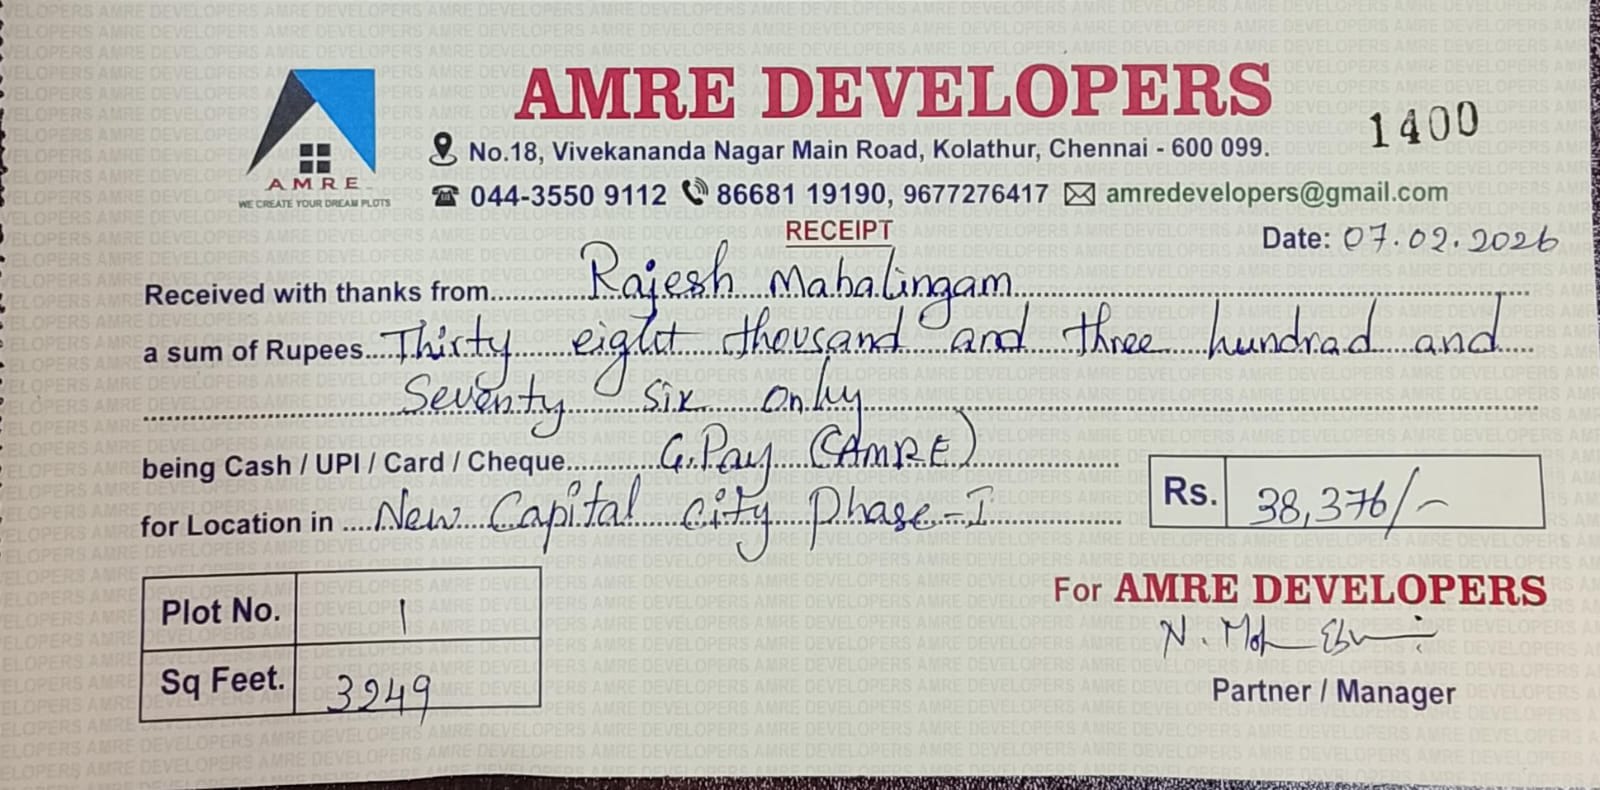 AMRE DEVELOPERS
1400
No.18, Vivekananda Nagar Main Road, Kolathur, Chennai - 600 099.
AMRE
WE CREATE YOUR DREAM PLOTS
044-3550 9112 86681 19190, 9677276417 amredevelopers@gmail.com
RECEIPT
Date: 07.02.2026
Received with thanks from Rajesh Mahalingam
a sum of Rupees Thirty eight thousand and three hundrad and
Seventy six only
being Cash / UPI / Card / Cheque G.Pay (AMRE)
for Location in New Capital City Phase-I
Rs. 38,376/-
Plot No. 1
Sq Feet. 3249
For AMRE DEVELOPERS
N.
Partner / Manager